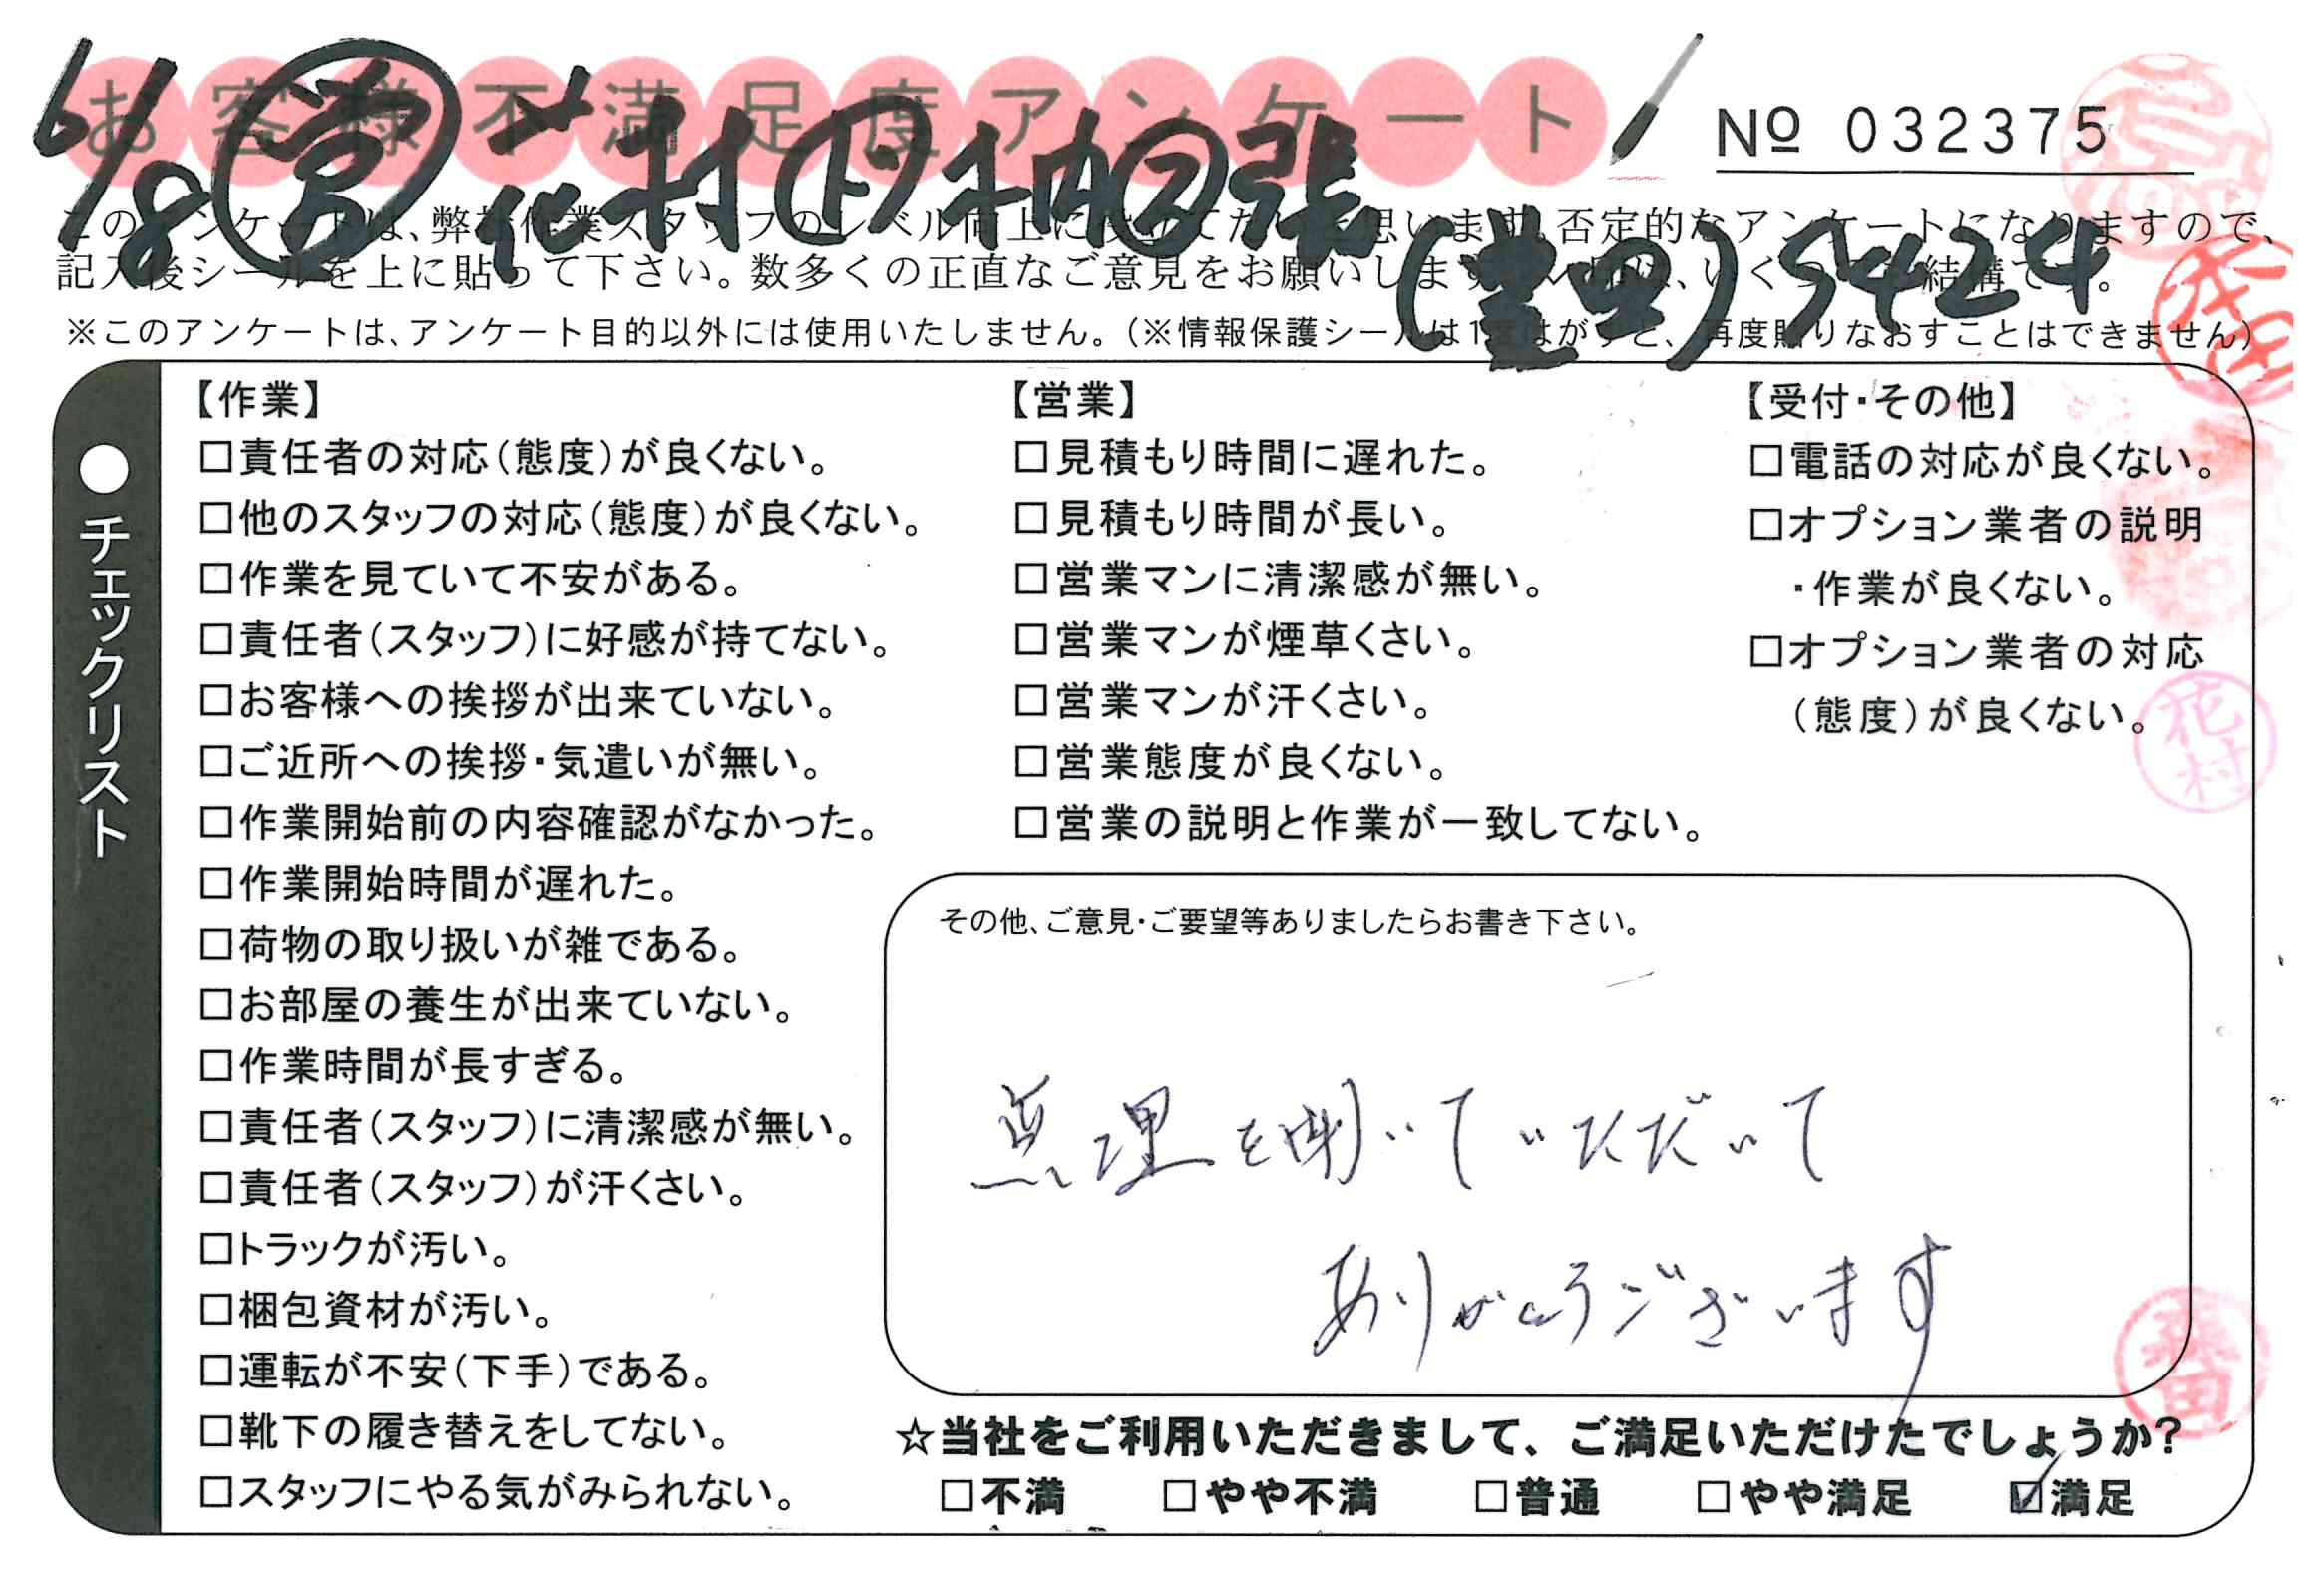 お客様不満足度アンケート
№ 032375
6/8 営 花村 下 柚 2 張
(豊里) S424
このアンケートは、弊社作業スタッフのレベル向上に 思います。否定的なアンケートになりますので、
記入後シールを上に貼って下さい。数多くの正直なご意見をお願いします。 いくつでも結構です。
※このアンケートは、アンケート目的以外には使用いたしません。(※情報保護シールは1度はがすと、再度貼りなおすことはできません)
●チェックリスト
【作業】
□責任者の対応(態度)が良くない。
□他のスタッフの対応(態度)が良くない。
□作業を見ていて不安がある。
□責任者(スタッフ)に好感が持てない。
□お客様への挨拶が出来ていない。
□ご近所への挨拶・気遣いが無い。
□作業開始前の内容確認がなかった。
□作業開始時間が遅れた。
□荷物の取り扱いが雑である。
□お部屋の養生が出来ていない。
□作業時間が長すぎる。
□責任者(スタッフ)に清潔感が無い。
□責任者(スタッフ)が汗くさい。
□トラックが汚い。
□梱包資材が汚い。
□運転が不安(下手)である。
□靴下の履き替えをしてない。
□スタッフにやる気がみられない。
【営業】
□見積もり時間に遅れた。
□見積もり時間が長い。
□営業マンに清潔感が無い。
□営業マンが煙草くさい。
□営業マンが汗くさい。
□営業態度が良くない。
□営業の説明と作業が一致してない。
【受付・その他】
□電話の対応が良くない。
□オプション業者の説明
・作業が良くない。
□オプション業者の対応
(態度)が良くない。
その他、ご意見・ご要望等ありましたらお書き下さい。
無理を聞いていただいて
ありがとうございます
☆当社をご利用いただきまして、ご満足いただけたでしょうか?
□不満 □やや不満 □普通 □やや満足 ☑満足
本田
花村
森田